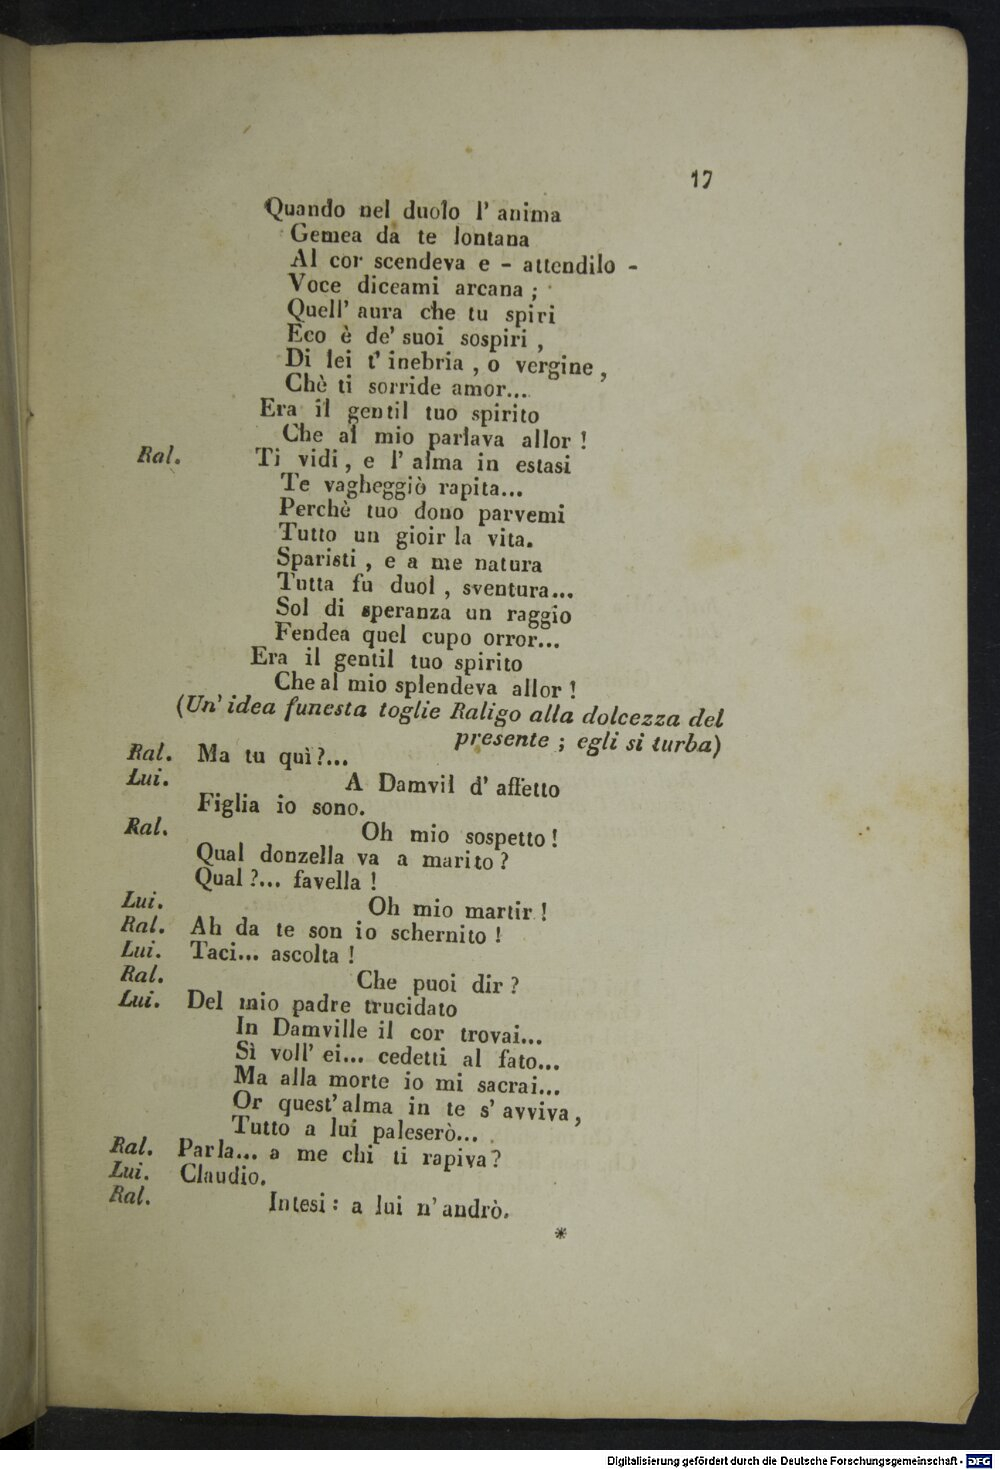 17
Quando nel duolo l' anima
Gemea da te lontana
Al cor scendeva e - attendilo -
Voce diceami arcana ;
Quell' aura che tu spiri
Eco è de' suoi sospiri ,
Di lei t' inebria , o vergine ,
Chè ti sorride amor...
Era il gentil tuo spirito
Che al mio parlava allor !
Ral. Ti vidi , e l' alma in estasi
Te vagheggiò rapita...
Perchè tuo dono parvemi
Tutto un gioir la vita.
Sparisti , e a me natura
Tutta fu duol , sventura...
Sol di speranza un raggio
Fendea quel cupo orror...
Era il gentil tuo spirito
Che al mio splendeva allor !
(Un' idea funesta toglie Raligo alla dolcezza del
presente ; egli si turba)
Ral. Ma tu quì ?...
Lui. A Damvil d' affetto
Figlia io sono.
Ral. Oh mio sospetto !
Qual donzella va a marito ?
Qual ?... favella !
Lui. Oh mio martir !
Ral. Ah da te son io schernito !
Lui. Taci... ascolta !
Ral. Che puoi dir ?
Lui. Del mio padre trucidato
In Damville il cor trovai...
Sì voll' ei... cedetti al fato...
Ma alla morte io mi sacrai...
Or quest' alma in te s' avviva ,
Tutto a lui paleserò...
Ral. Parla... a me chi ti rapiva ?
Lui. Claudio.
Ral. Intesi : a lui n' andrò.
*
Digitalisierung gefördert durch die Deutsche Forschungsgemeinschaft - DFG